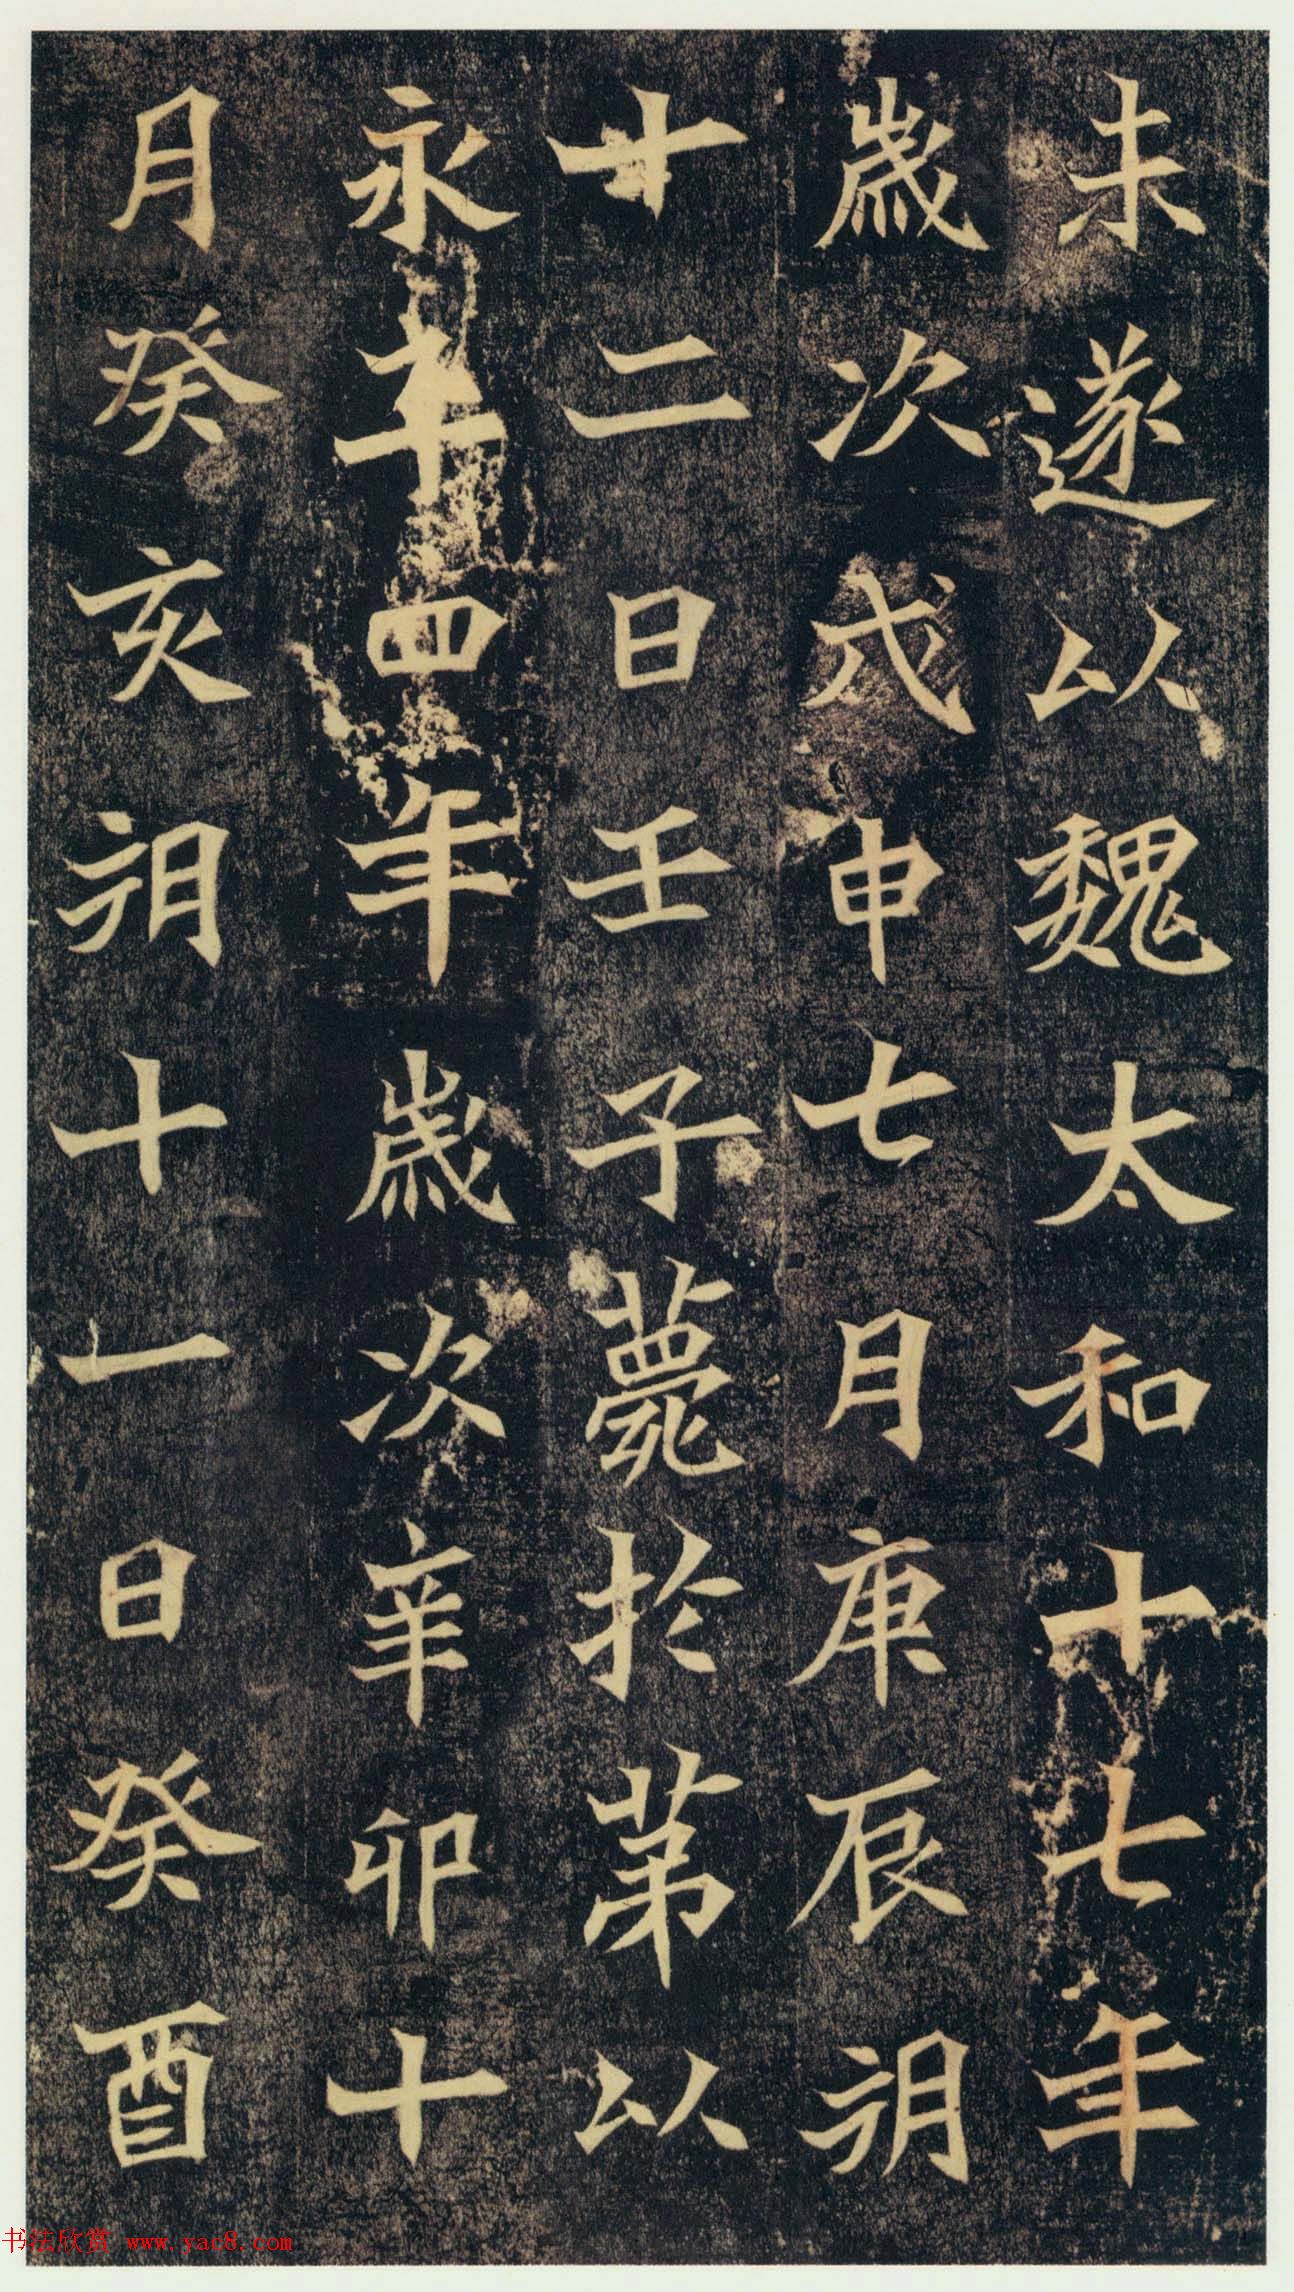 未遂以魏太和十七年
歲次戊申七月庚辰朔
十二日壬子薨於第以
永平四年歲次辛卯十
月癸亥朔十一日癸酉
书法欣赏 www.yac8.com